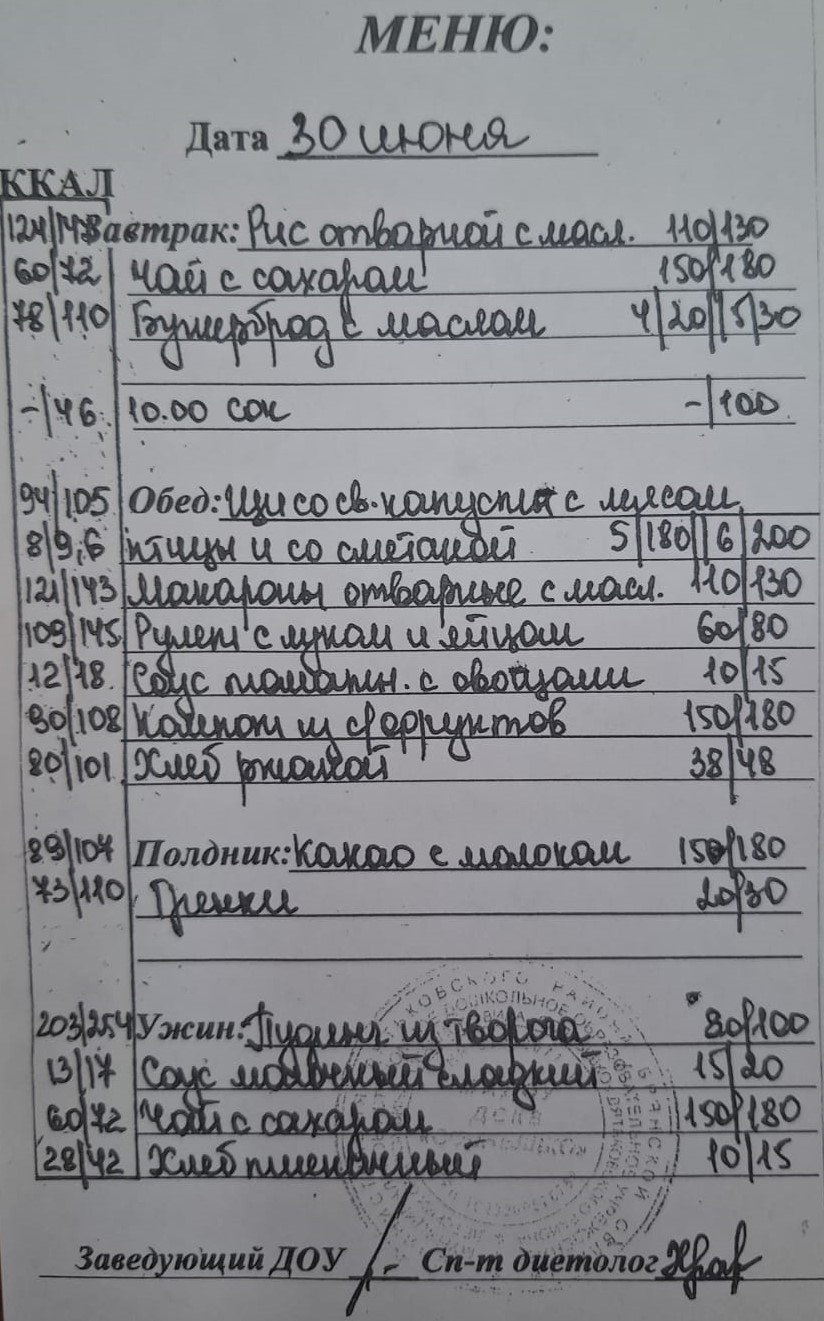 МЕНЮ:
Дата 30 июня
ККАЛ
124/148 Завтрак: Рис отварной с масл. 110/130
60/72 Чай с сахаром 150/180
78/110 Бутерброд с маслом 4/20//5/30
-/46. 10.00 сок -/100
94/105 Обед: Щи со св. капусты с мясом
8/9,6 птицы и со сметаной 5/180//6/200
121/143 Макароны отварные с масл. 110/130
109/145 Рулет с луком и яйцом 60/80
12/18. Соус томатн. с овощами 10/15
90/108 Компот из с/фруктов 150/180
80/101 Хлеб ржаной 38/48
89/107 Полдник: Какао с молоком 150/180
73/110 Гренки 20/30
203/254 Ужин: Пудинг из творога 80/100
13/17 Соус молочный сладкий 15/20
60/72 Чай с сахаром 150/180
28/42 Хлеб пшеничный 10/15
Заведующий ДОУ Сп-т диетолог